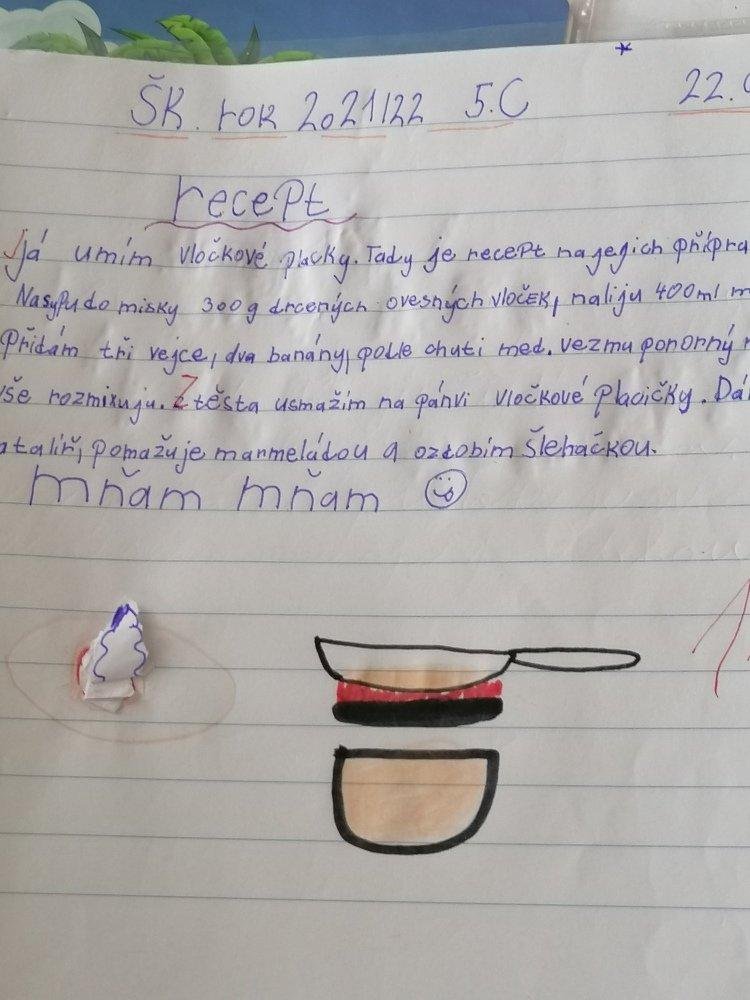 ŠK. rok 2021/22 5.C 22.
recept
Já umím vločkové placky. Tady je recept na jejich přípra
Nasypu do misky 300g drcených ovesných vloček, naliju 400ml m
Přidám tři vejce, dva banány, podle chuti med. vezmu ponorný
vše rozmixuju. Z těsta usmažím na pánvi vločkové placičky. Dá
na talíř, pomažu je marmeládou a ozdobím šlehačkou.
mňam mňam